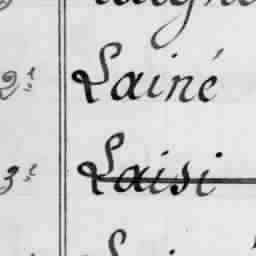 2e Lainé
3e Laisi